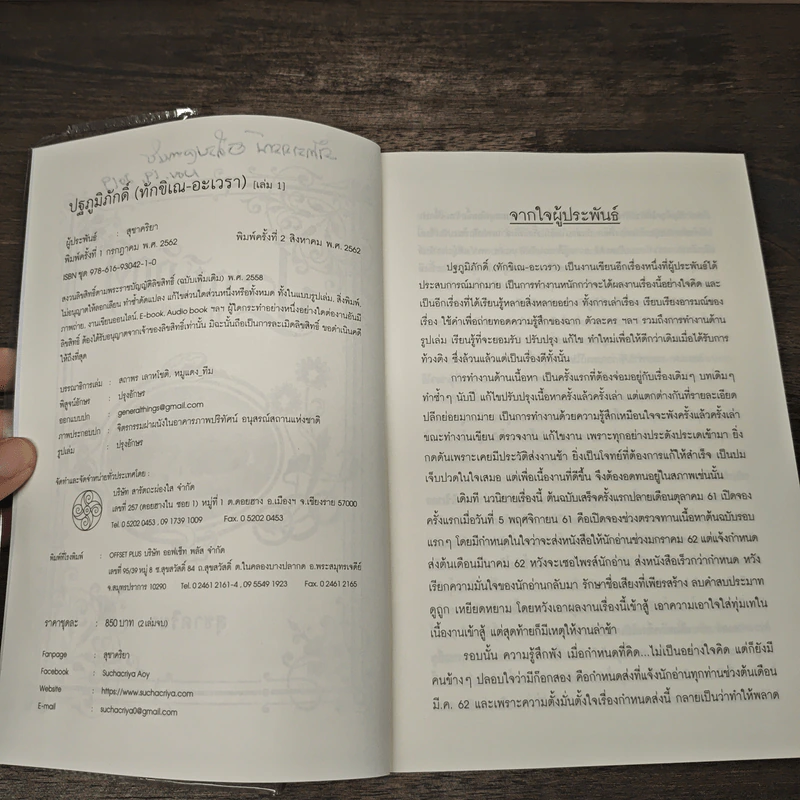 ปฐภูมิภักดิ์ (ทักขิเณ-อะเวรา) [เล่ม 1]
ผู้ประพันธ์ : สุชาคริยา
พิมพ์ครั้งที่ 1 กรกฎาคม พ.ศ. 2562 พิมพ์ครั้งที่ 2 สิงหาคม พ.ศ. 2562
ISBN ชุด 978-616-93042-1-0
สงวนลิขสิทธิ์ตามพระราชบัญญัติลิขสิทธิ์ (ฉบับเพิ่มเติม) พ.ศ. 2558
ไม่อนุญาตให้ลอกเลียน ทำซ้ำดัดแปลง แก้ไขส่วนใดส่วนหนึ่งหรือทั้งหมด ทั้งในแบบรูปเล่ม, สิ่งพิมพ์,
ภาพถ่าย, งานเขียนออนไลน์, E-book, Audio book ฯลฯ ผู้ใดกระทำอย่างหนึ่งอย่างใดต่องานอันมี
ลิขสิทธิ์ ต้องได้รับอนุญาตจากเจ้าของลิขสิทธิ์เท่านั้น มิฉะนั้นถือเป็นการละเมิดลิขสิทธิ์ ขอดำเนินคดี
ให้ถึงที่สุด
บรรณาธิการเล่ม : สถาพร เลาหโชติ, หมูแดง_ทีม
พิสูจน์อักษร : ปรุงอักษร
ออกแบบปก : generalthings@gmail.com
ภาพประกอบปก : จิตรกรรมฝาผนังในอาคารภาพปริทัศน์ อนุสรณ์สถานแห่งชาติ
รูปเล่ม : ปรุงอักษร
จัดทำและจัดจำหน่ายทั่วประเทศโดย :
บริษัท สารัตถะผ่องใส จำกัด
เลขที่ 257 (ดอยฮางใน ซอย 1) หมู่ที่ 1 ต.ดอยฮาง อ.เมืองฯ จ.เชียงราย 57000
Tel. 0 5202 0453 , 09 1739 1009 Fax. 0 5202 0453
พิมพ์ที่โรงพิมพ์ : OFFSET PLUS บริษัท ออฟเซ็ท พลัส จำกัด
เลขที่ 95/39 หมู่ 8 ซ.สุขสวัสดิ์ 84 ถ.สุขสวัสดิ์ ต.ในคลองบางปลากด อ.พระสมุทรเจดีย์
จ.สมุทรปราการ 10290 Tel. 0 2461 2161-4 , 09 5549 1923 Fax. 0 2461 2165
ราคาชุดละ : 850 บาท (2 เล่มจบ)
Fanpage : สุชาคริยา
Facebook : Suchacriya Aoy
Website : https://www.suchacriya.com
E-mail : suchacriya0@gmail.com
จากใจผู้ประพันธ์
ปฐภูมิภักดิ์ (ทักขิเณ-อะเวรา) เป็นงานเขียนอีกเรื่องหนึ่งที่ผู้ประพันธ์ได้
ประสบการณ์มากมาย เป็นการทำงานหนักกว่าจะได้ผลงานเรื่องนี้อย่างใจคิด และ
เป็นอีกเรื่องที่ได้เรียนรู้หลายสิ่งหลายอย่าง ทั้งการเล่าเรื่อง เรียบเรียงอารมณ์ของ
เรื่อง ใช้คำเพื่อถ่ายทอดความรู้สึกของฉาก ตัวละคร ฯลฯ รวมถึงการทำงานด้าน
รูปเล่ม เรียนรู้ที่จะยอมรับ ปรับปรุง แก้ไข ทำใหม่เพื่อให้ดีกว่าเดิมเมื่อได้รับการ
ท้วงติง ซึ่งล้วนแล้วแต่เป็นเรื่องดีทั้งนั้น
การทำงานด้านเนื้อหา เป็นครั้งแรกที่ต้องจ่อมอยู่กับเรื่องเดิมๆ บทเดิมๆ
ทำซ้ำๆ นับปี แก้ไขปรับปรุงเนื้อหาครั้งแล้วครั้งเล่า แต่แตกต่างกันที่รายละเอียด
ปลีกย่อยมากมาย เป็นการทำงานด้วยความรู้สึกเหมือนใจจะพังครั้งแล้วครั้งเล่า
ขณะทำงานเขียน ตรวจงาน แก้ไขงาน เพราะทุกอย่างประดังประเดเข้ามา ยิ่ง
กดดันเพราะเคยมีประวัติส่งงานช้า ยิ่งเป็นโจทย์ที่ต้องการแก้ให้สำเร็จ เป็นปม
เจ็บปวดในใจเสมอ แต่เพื่อเนื้องานที่ดีขึ้น จึงต้องอดทนอยู่ในสภาพเช่นนั้น
เดิมที นวนิยายเรื่องนี้ ต้นฉบับเสร็จครั้งแรกปลายเดือนตุลาคม 61 เปิดจอง
ครั้งแรกเมื่อวันที่ 5 พฤศจิกายน 61 คือเปิดจองช่วงตรวจทานเนื้อหาต้นฉบับรอบ
แรกๆ โดยมีกำหนดในใจว่าจะส่งหนังสือให้นักอ่านช่วงมกราคม 62 แต่แจ้งกำหนด
ส่งต้นเดือนมีนาคม 62 หวังจะเซอไพรส์นักอ่าน ส่งหนังสือเร็วกว่ากำหนด หวัง
เรียกความมั่นใจของนักอ่านกลับมา รักษาชื่อเสียงที่เพียรสร้าง ลบคำสบประมาท
ดูถูก เหยียดหยาม โดยหวังเอาผลงานเรื่องนี้เข้าสู้ เอาความเอาใจใส่ทุ่มเทใน
เนื้องานเข้าสู้ แต่สุดท้ายก็มีเหตุให้งานล่าช้า
รอบนั้น ความรู้สึกพัง เมื่อกำหนดที่คิด...ไม่เป็นอย่างใจคิด แต่ก็ยังมี
คนข้างๆ ปลอบใจว่ามีก๊อกสอง คือกำหนดส่งที่แจ้งนักอ่านทุกท่านช่วงต้นเดือน
มี.ค. 62 และเพราะความตั้งมั่นตั้งใจเรื่องกำหนดส่งนี้ กลายเป็นว่าทำให้พลาด